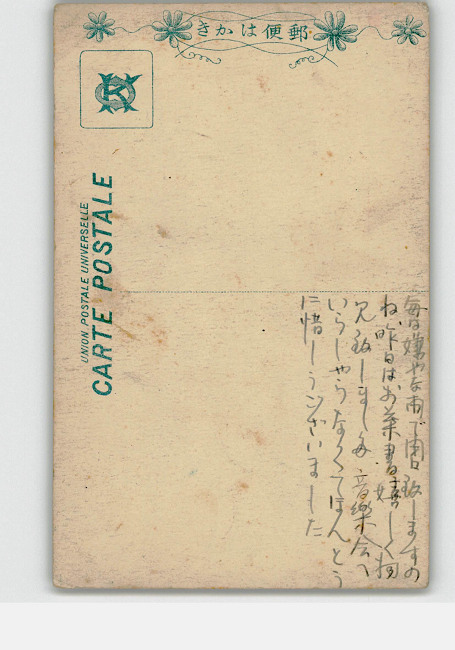 郵便はかき
UNION POSTALE UNIVERSELLE
CARTE POSTALE
毎日嫌やな雨で閉口致しますの
ね昨日はお葉書嬉しく拝
見致しました音樂会へ
いらしやらなくてほんとう
に惜しうございました